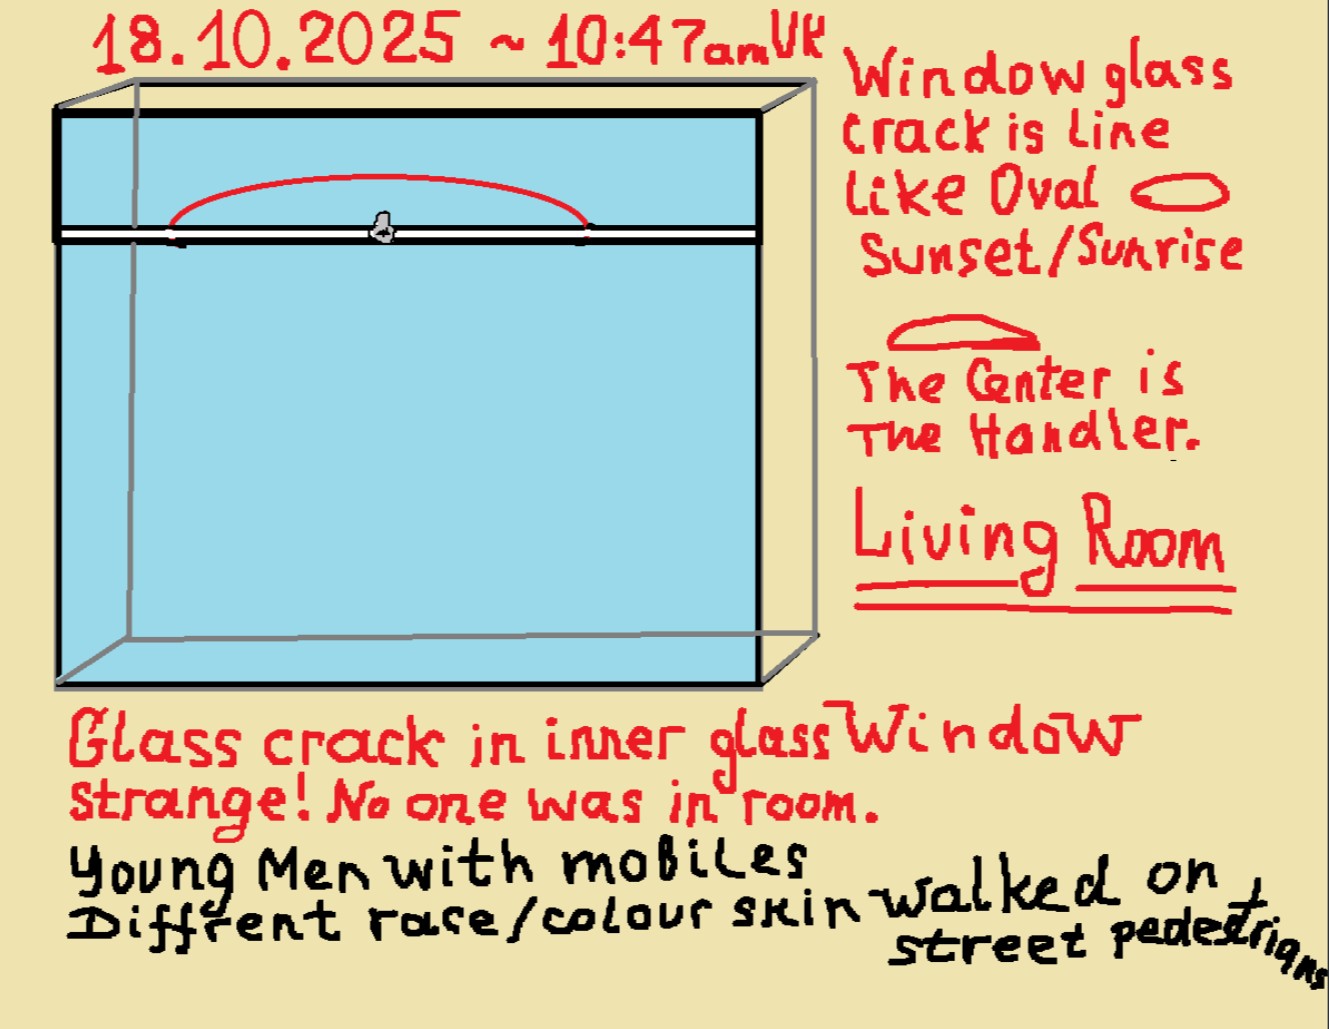 18.10.2025 ~ 10:47am UK
Window glass
crack is line
like Oval
Sunset/Sunrise
The Center is
The Handler.
Living Room
Glass crack in inner glass Window
strange! No one was in room.
Young Men with mobiles
Diffrent race/colour skin walked on
street pedestrians